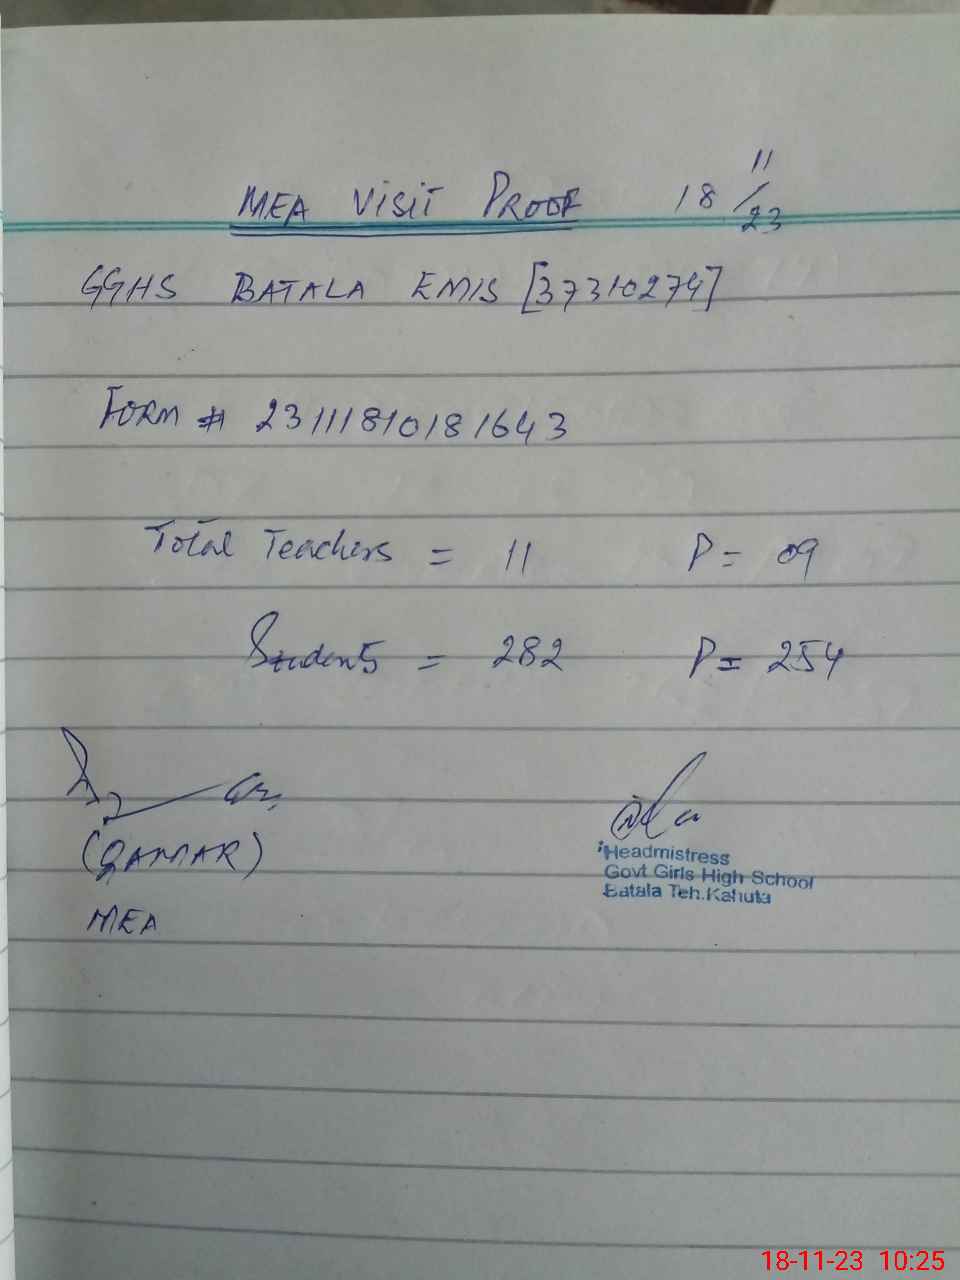 MEA Visit Proof 18/11/23
GGHS BATALA EMIS [37310274]
Form # 23111810181643
Total Teachers = 11 P = 09
Students = 282 P = 254
(QAMAR)
MEA
Headmistress
Govt Girls High School
Batala Teh.Kahuta
18-11-23 10:25